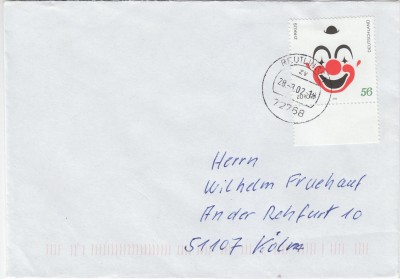 ZIRKUS
DEUTSCHE POST
56
REUTLIN
zv
72768
Herrn
Wilhelm Fruehauf
An der Rehfurt 10
51107 Köln